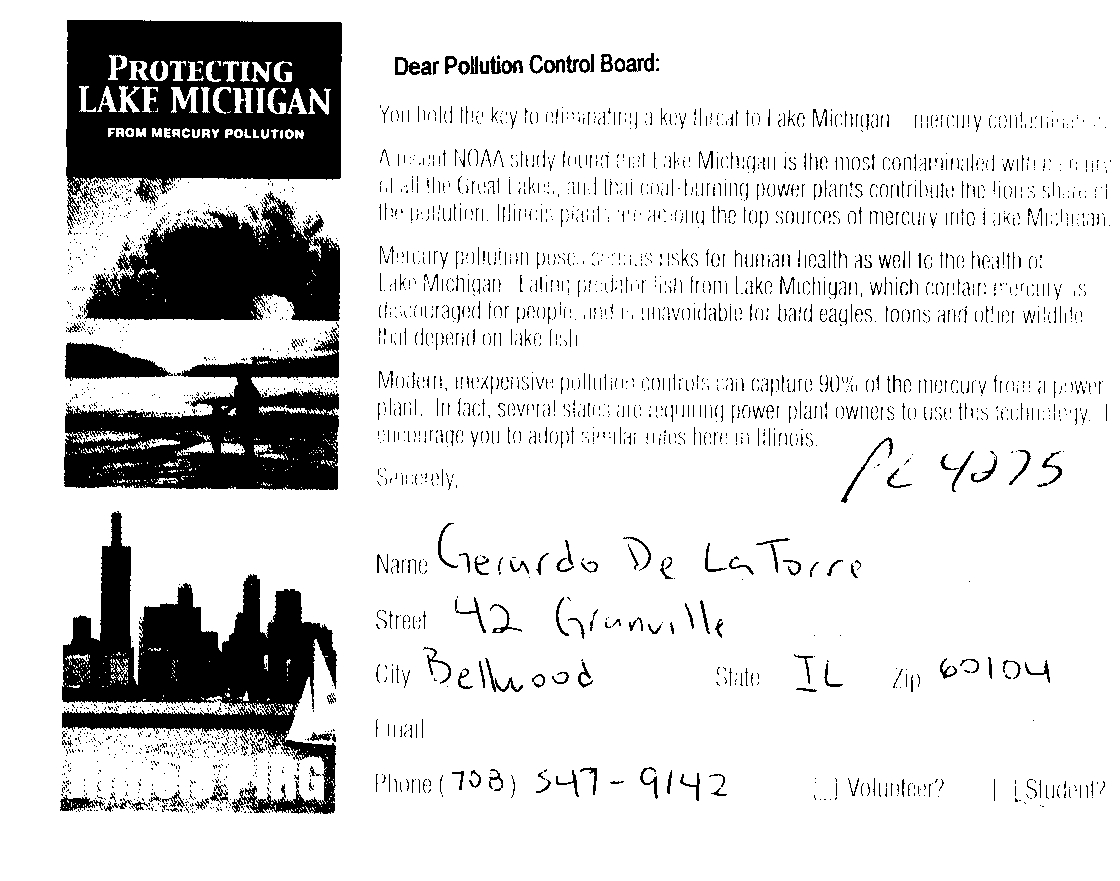 PROTECTING
LAKE MICHIGAN
FROM MERCURY POLLUTION
ILLINOIS PIRG
Dear Pollution Control Board:
You hold the key to eliminating a key threat to Lake Michigan mercury contamination.
A recent NOAA study found that Lake Michigan is the most contaminated with mercury
of all the Great Lakes, and that coal-burning power plants contribute the lions share of
the pollution. Illinois plants are among the top sources of mercury into Lake Michigan.
Mercury pollution poses serious risks for human health as well to the health of
Lake Michigan. Eating predator fish from Lake Michigan, which contain mercury is
discouraged for people, and is unavoidable for bald eagles, loons and other wildlife
that depend on lake fish.
Modern, inexpensive pollution controls can capture 90% of the mercury from a power
plant. In fact, several states are requiring power plant owners to use this technology. I
encourage you to adopt similar rules here in Illinois.
Sincerely,
PC 4275
Name Gerardo De La Torre
Street 42 Granville
City Bellwood State IL Zip 60104
Email
Phone (708) 547-9142 Volunteer? Student?